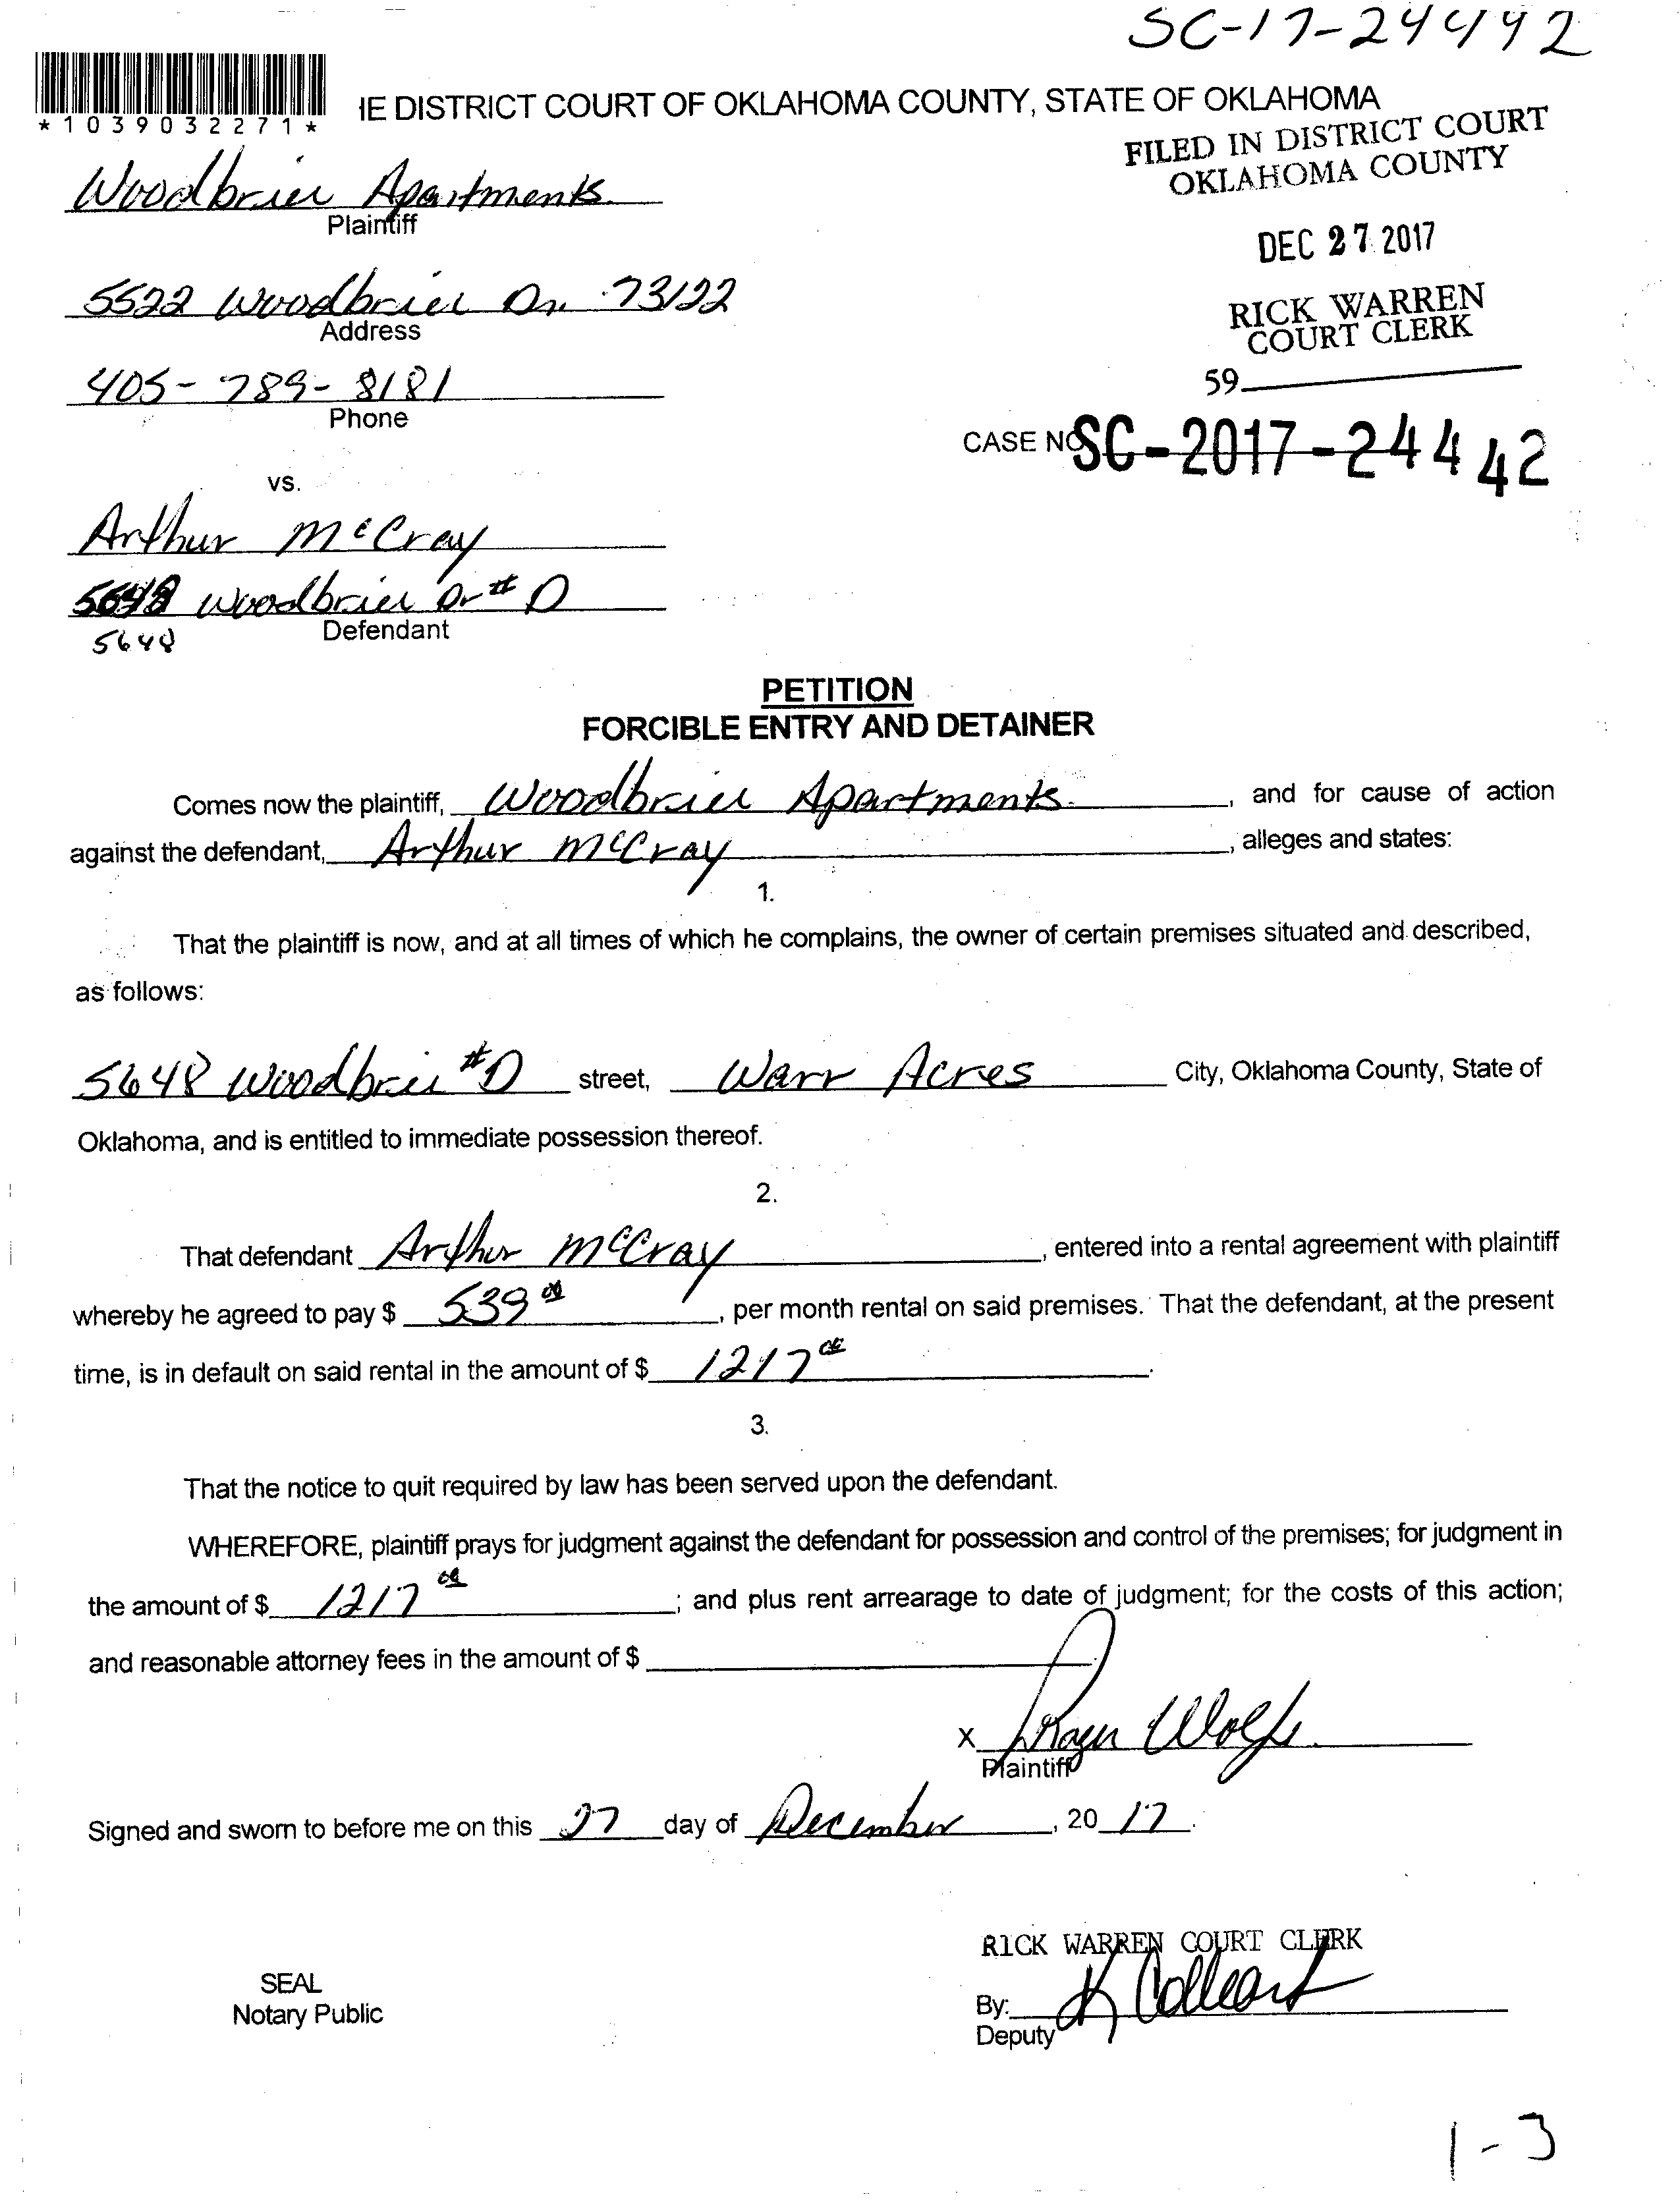 SC-17-24442
*1039032271*
IE DISTRICT COURT OF OKLAHOMA COUNTY, STATE OF OKLAHOMA
FILED IN DISTRICT COURT
OKLAHOMA COUNTY
Woodbrier Apartments
Plaintiff
DEC 27 2017
5522 Woodbrier Dr. 73122
Address
RICK WARREN
COURT CLERK
405-789-8181
Phone
59
CASE NO SC-2017-24442
vs.
Arthur McCray
Woodbrier Dr # D
5648
Defendant
PETITION
FORCIBLE ENTRY AND DETAINER
Comes now the plaintiff, Woodbrier Apartments, and for cause of action
against the defendant, Arthur McCray, alleges and states:
1.
That the plaintiff is now, and at all times of which he complains, the owner of certain premises situated and described,
as follows:
5648 Woodbrier #D street, Warr Acres City, Oklahoma County, State of
Oklahoma, and is entitled to immediate possession thereof.
2.
That defendant Arthur McCray, entered into a rental agreement with plaintiff
whereby he agreed to pay $ 539 00, per month rental on said premises. That the defendant, at the present
time, is in default on said rental in the amount of $ 1217 00.
3.
That the notice to quit required by law has been served upon the defendant.
WHEREFORE, plaintiff prays for judgment against the defendant for possession and control of the premises; for judgment in
the amount of $ 1217 00; and plus rent arrearage to date of judgment; for the costs of this action;
and reasonable attorney fees in the amount of $
X Wolfe
Plaintiff
Signed and sworn to before me on this 27 day of December, 20 17.
RICK WARREN COURT CLERK
SEAL
Notary Public
By: K
Deputy
1-3